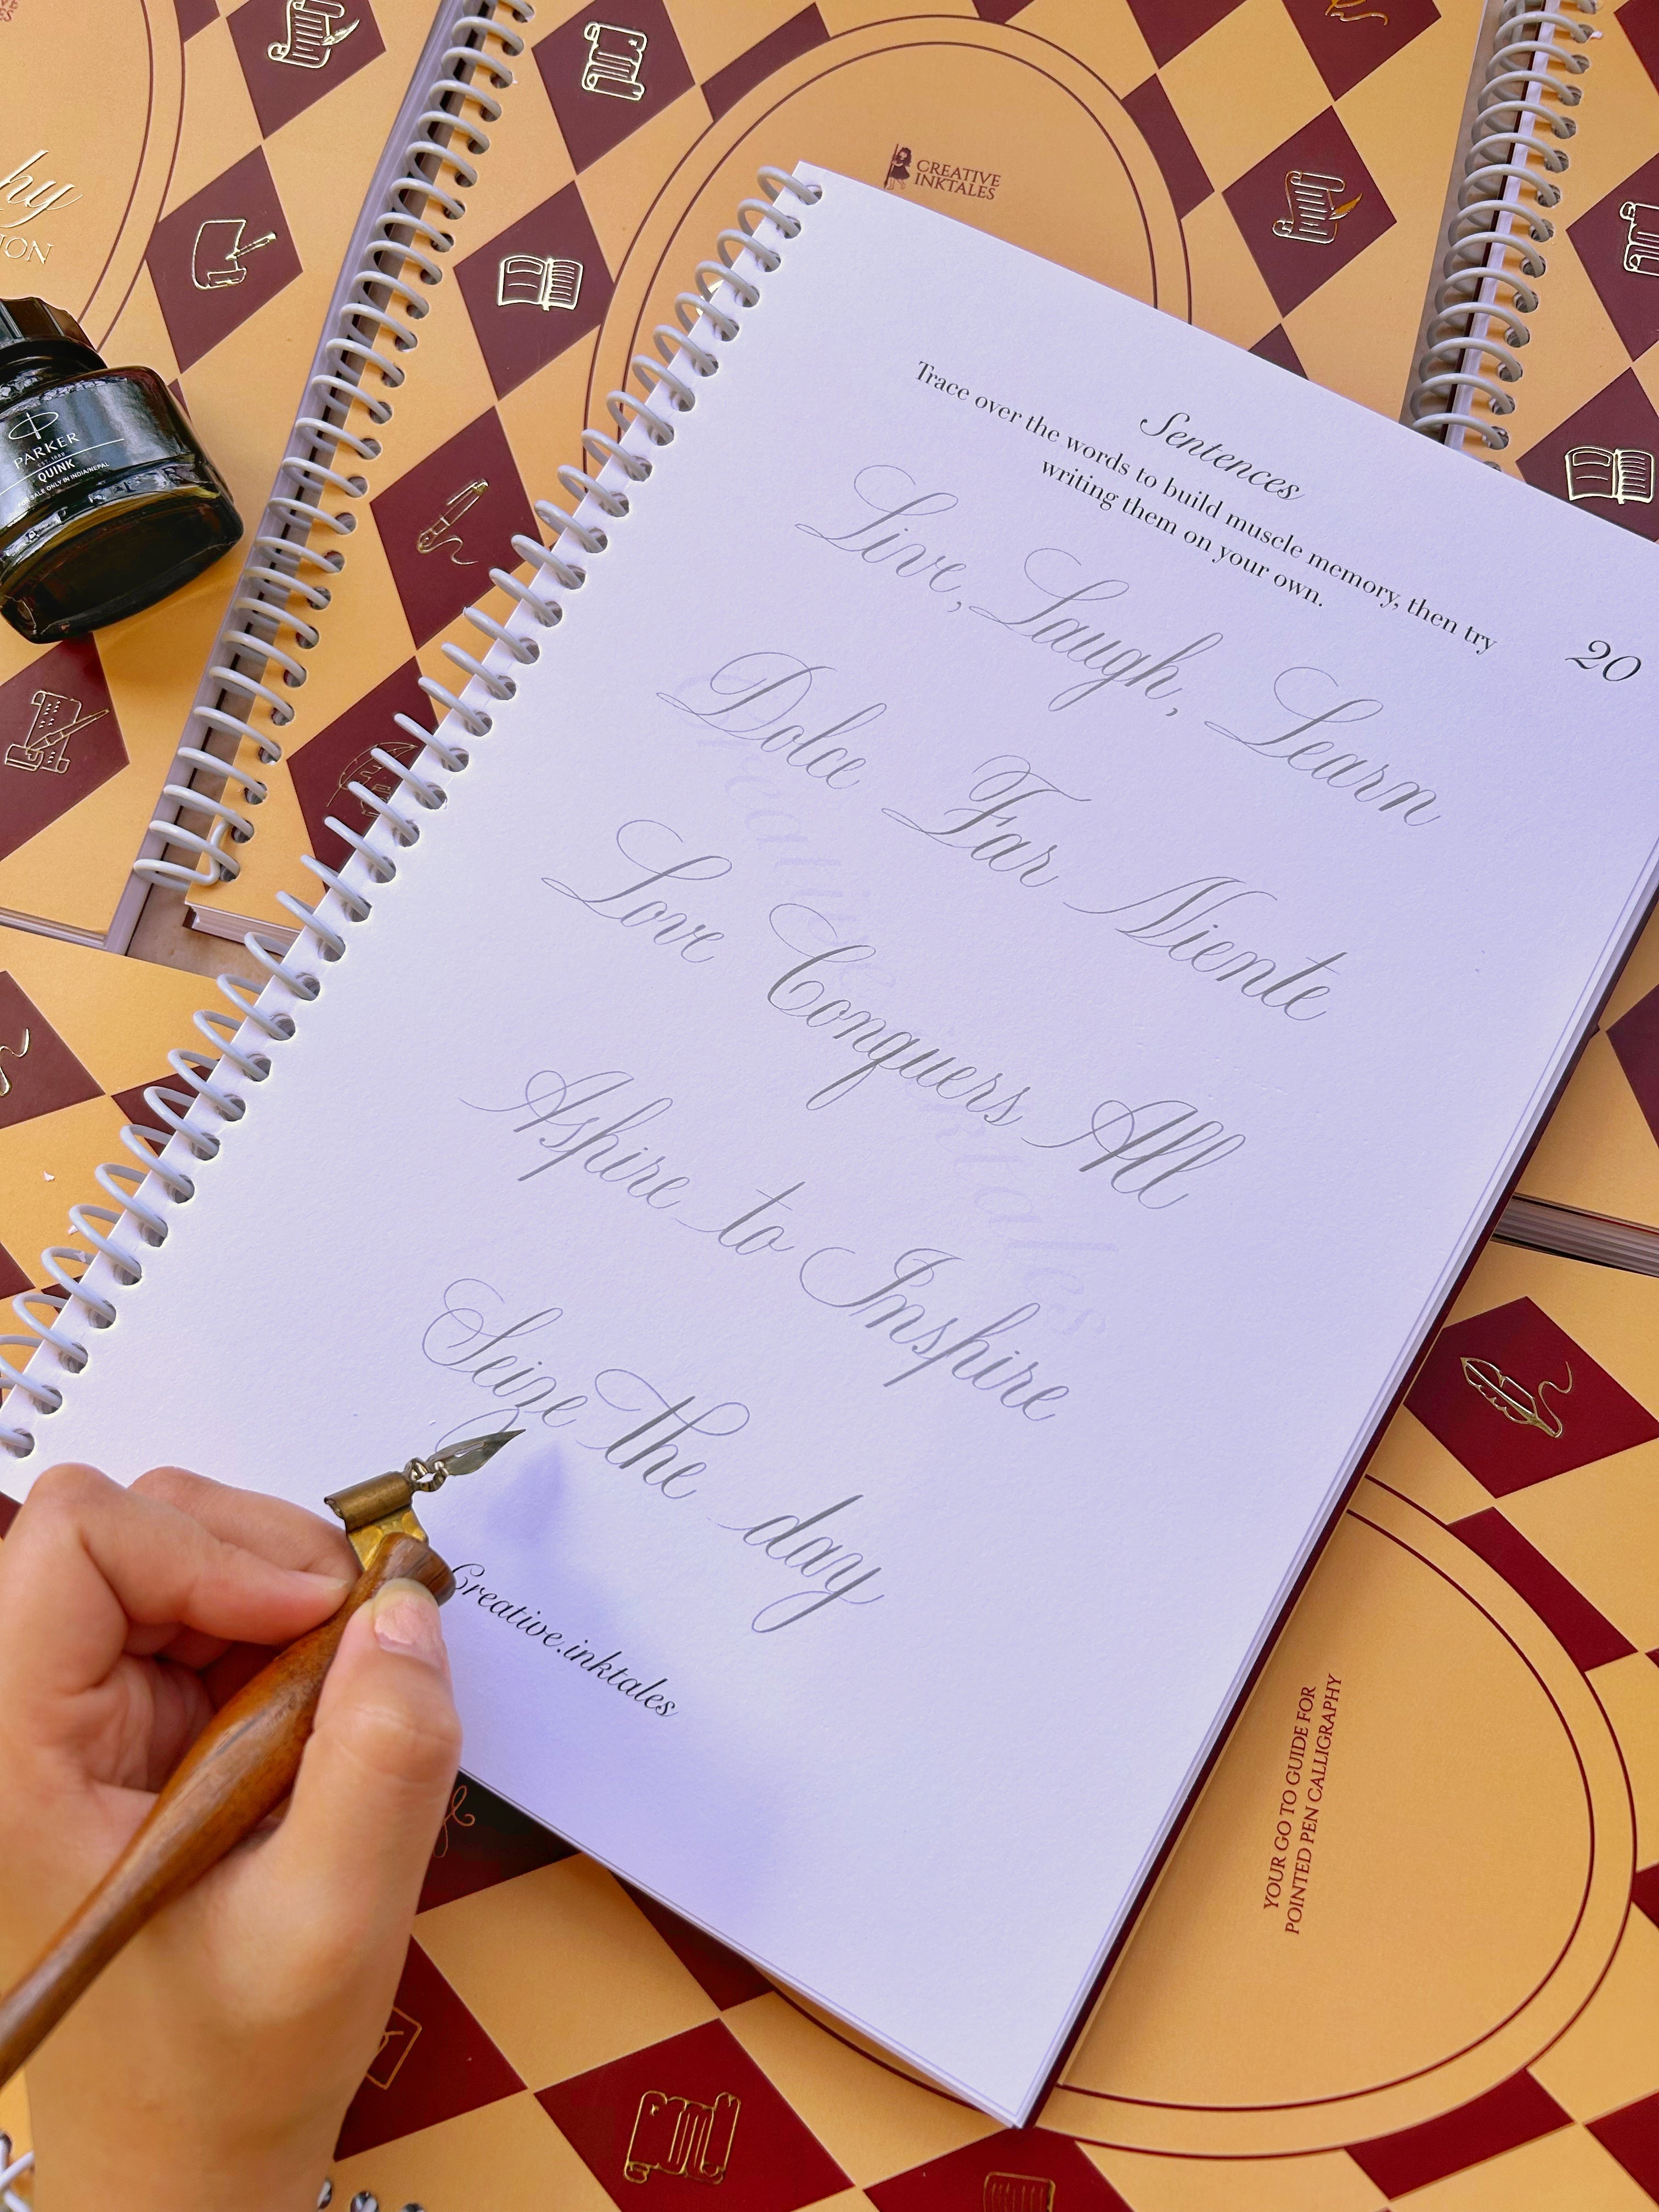 CREATIVE
INKTALES
Sentences
Trace over the words to build muscle memory, then try
writing them on your own.
20
Live, Laugh, Learn
Dolce Far Niente
Love Conquers All
Aspire to Inspire
Seize the day
Creative.inktales
Creative Inktales
PARKER
EST. 1888
QUINK
FOR SALE ONLY IN INDIA/NEPAL
YOUR GO TO GUIDE FOR
POINTED PEN CALLIGRAPHY